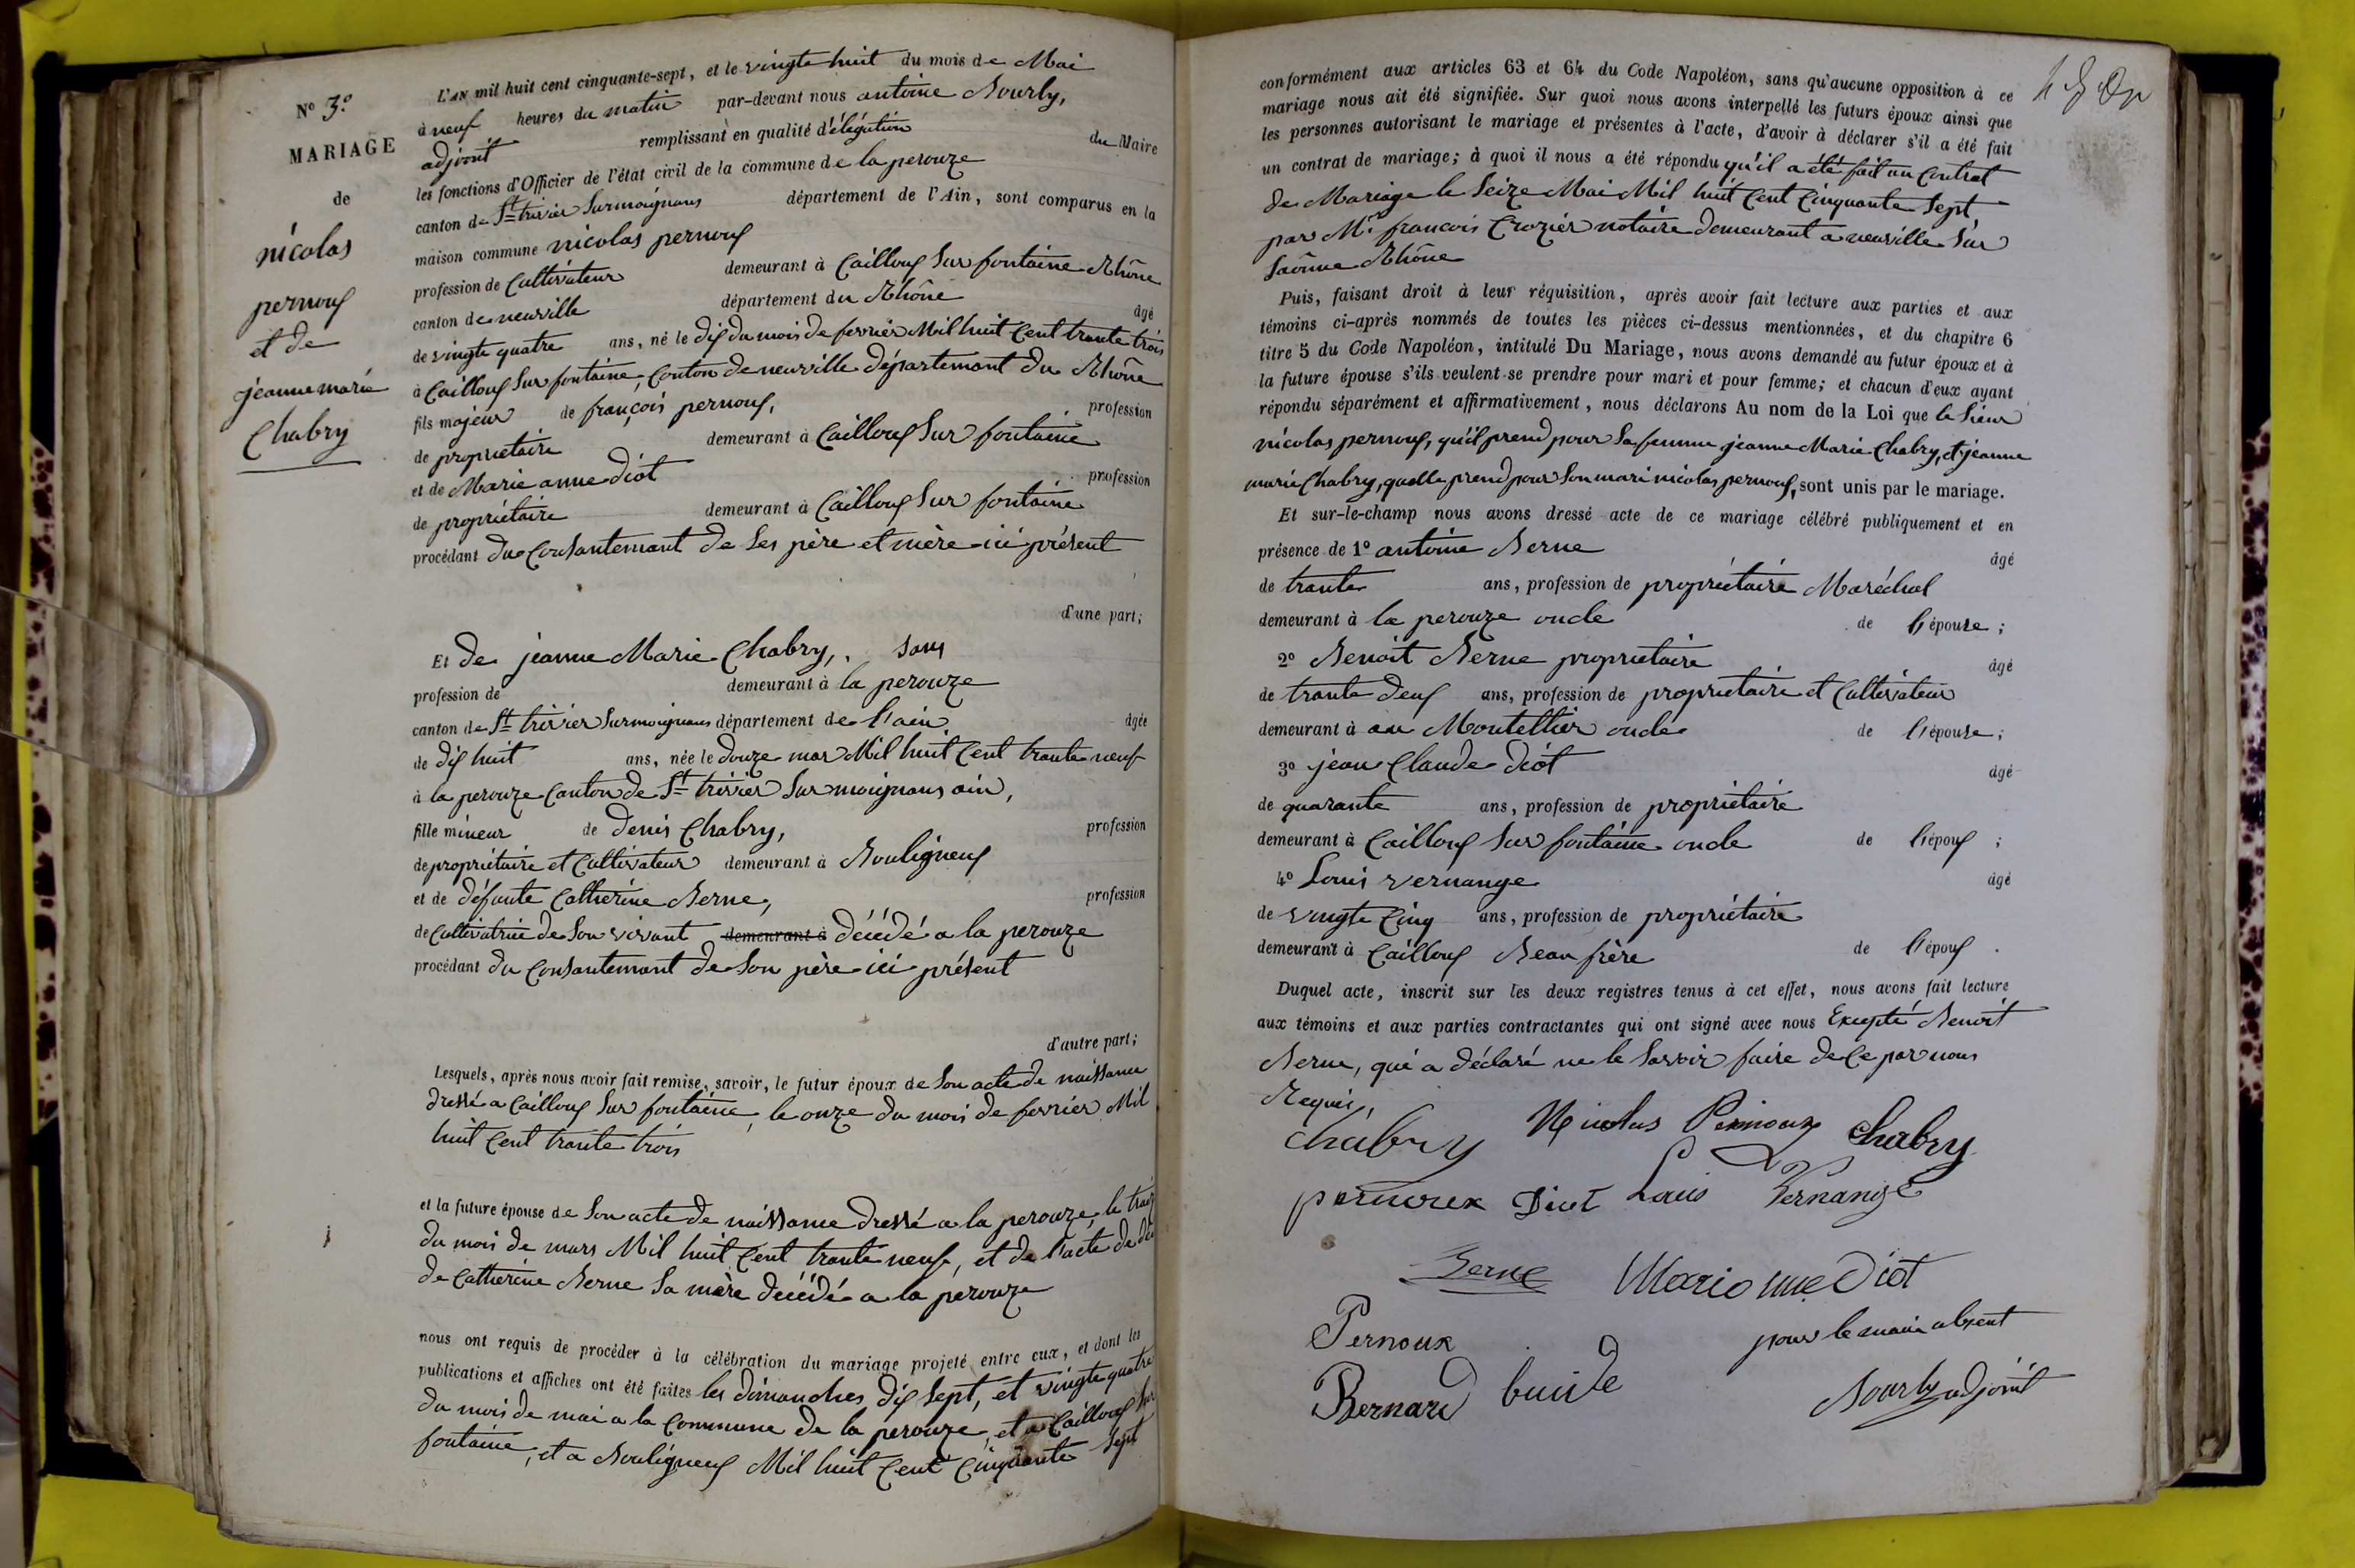 N° 3°
MARIAGE
de
nicolas
pernoux
et de
jeanne marie
Chabry
L'AN mil huit cent cinquante-sept, et le vingte huit du mois de Mai
à neuf heures du matin par-devant nous antoine Bourly,
adjoint remplissant en qualité d'élégation du Maire
les fonctions d'Officier de l'état civil de la commune de la perouze
canton de St trivier Surmoignans département de l'Ain, sont comparus en la
maison commune nicolas pernoux
profession de Cultivateur demeurant à Cailloux Sur fontaine Rhône
canton de neuville département du Rhône âgé
de vingte quatre ans, né le dix du mois de fevrier Mil huit Cent trante trois
à Cailloux Sur fontaine, Conton de neuville département du Rhône
fils majeur de françois pernoux, profession
de propriétaire demeurant à Cailloux Sur fontaine
et de Marie anne diot profession
de propriétaire demeurant à Cailloux Sur fontaine
procédant du Consantemant de Ses père et mère ici présent
d'une part;
Et de jeanne Marie Chabry, Sans
profession de demeurant à la perouze
canton de St trivier Surmoignans département de l'ain âgée
de dix huit ans, née le douze mar Mil huit Cent trante neuf
à la perouze Canton de St trivier Sur moignans ain,
fille mineur de Denis Chabry, profession
de propriétaire et Cultivateur demeurant à Bouligneux
et de défunte Catherine Berne, profession
de Cultivatrice de Son vivant demeurant à décédé a la perouze
procédant du Consantemant de Son père ici présent
d'autre part;
Lesquels, après nous avoir fait remise, savoir, le futur époux de Son acte de naissance
dressé a Cailloux Sur fontaine, le onze du mois de fevrier Mil
huit Cent trante trois
et la future épouse de Son acte de naissance dressé a la perouze, le
du mois de mars Mil huit Cent trante neuf, et de l'acte de
de Catherine Berne Sa mère décédé a la perouze
nous ont requis de procéder à la célébration du mariage projeté entre eux, et dont les
publications et affiches ont été faites les dimanches dix Sept, et vingte quatre
du mois de mai a la Commune de la perouze, et a Cailloux Sur
fontaine, et a Bouligneux Mil huit Cent Cinquante Sept
conformément aux articles 63 et 64 du Code Napoléon, sans qu'aucune opposition à ce
mariage nous ait été signifiée. Sur quoi nous avons interpellé les futurs époux ainsi que
les personnes autorisant le mariage et présentes à l'acte, d'avoir à déclarer s'il a été fait
un contrat de mariage; à quoi il nous a été répondu qu'il a été fait un Contrat
de Mariage le Seize Mai Mil huit Cent Cinquante Sept,
par Me francois Crozier notaire demeurant a neuville Sur
Saônne Rhône
Puis, faisant droit à leur réquisition, après avoir fait lecture aux parties et aux
témoins ci-après nommés de toutes les pièces ci-dessus mentionnées, et du chapitre 6
titre 5 du Code Napoléon, intitulé Du Mariage, nous avons demandé au futur époux et à
la future épouse s'ils veulent se prendre pour mari et pour femme; et chacun d'eux ayant
répondu séparément et affirmativement, nous déclarons Au nom de la Loi que le Sieur
nicolas pernoux, qu'il prend pour Sa femme jeanne Marie Chabry, et jeanne
marie Chabry, quelle prend pour Son mari nicolas pernoux, sont unis par le mariage.
Et sur-le-champ nous avons dressé acte de ce mariage célébré publiquement et en
présence de 1° antoine Berne âgé
de trante ans, profession de propriétaire Maréchal
demeurant à la perouze oncle de l'épouse;
2° Benoit Berne proprietaire âgé
de trante deux ans, profession de proprietaire et Cultivateur
demeurant à au Montellier oncle de l'épouse;
3° jean Claude diot âgé
de quarante ans, profession de propriétaire
demeurant à Cailloux Sur fontaine oncle de l'époux;
4° Louis vernange âgé
de vingte Cinq ans, profession de propriétaire
demeurant à Cailloux Beau frère de l'époux.
Duquel acte, inscrit sur les deux registres tenus à cet effet, nous avons fait lecture
aux témoins et aux parties contractantes qui ont signé avec nous Excepté Benoit
Berne, qui a déclaré ne le Savoir faire de Ce par nous
Requis,
Chabry Nicolas Pernoux Chabry
pernoux Diot Louis Vernange
Berne Marianne Diot
Pernoux pour le maire absent
Bernard Bourly adjoint